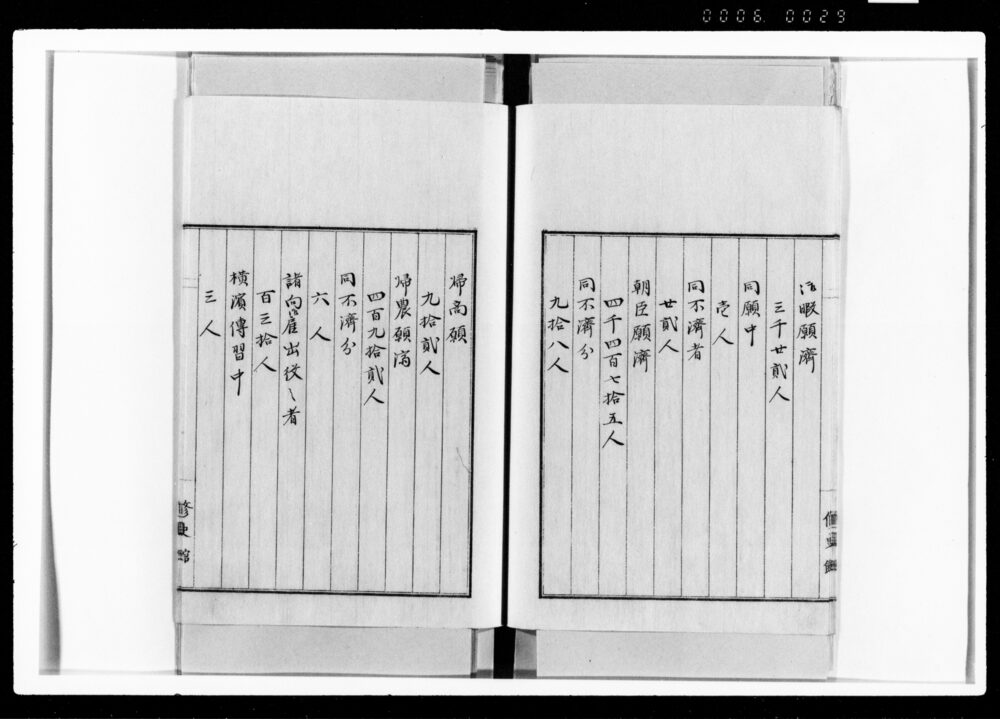 0006. 0029
御暇願濟
三千廿貳人
同願中
壱人
同不濟者
廿貳人
朝臣願濟
四千四百七拾五人
同不濟分
九拾八人
修史館
帰商願
九拾貳人
帰農願済
四百九拾貳人
同不濟分
六人
諸向雇出役之者
百三拾人
横濱傳習中
三人
修史館